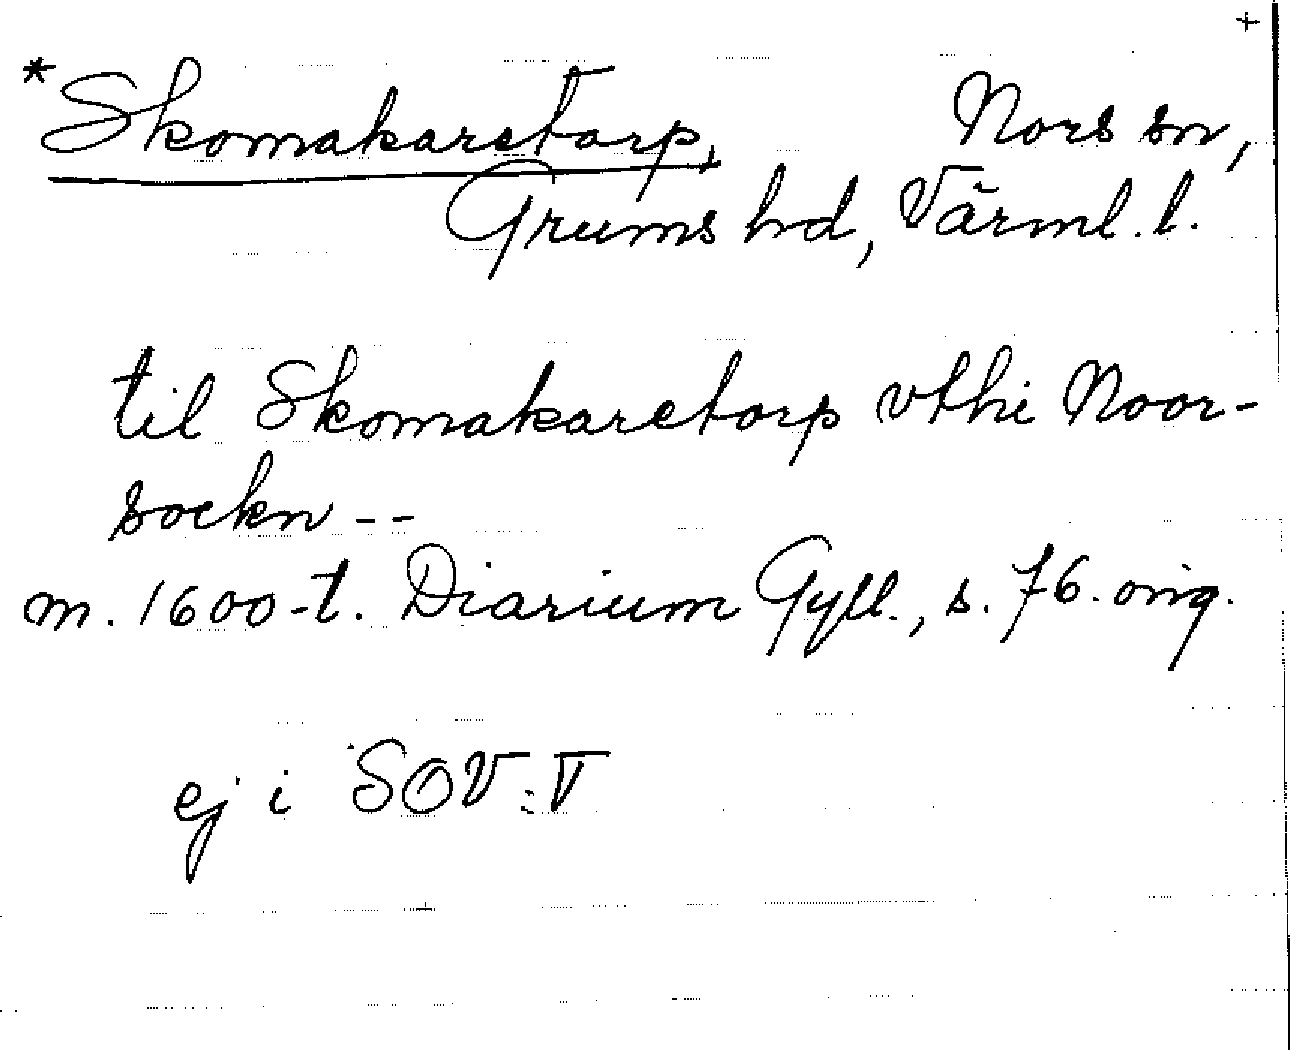 +
*Skomakaretorp, Nors sn,
Grums hd, Värml. l.
til Skomakaretorp vthi Noor-
sockn --
m. 1600-t. Diarium Gyll., s. 76. orig.
ej i SOV:T